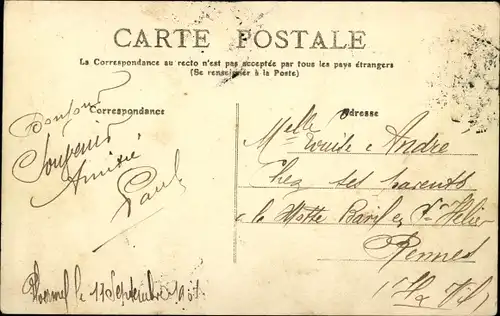 CARTE POSTALE
La Correspondance au recto n'est pas acceptée par tous les pays étrangers
(Se renseigner à la Poste)
Correspondance
Bonjour
Souvenir
Amitié
Paul
le 11 Septembre
Adresse
Melle
Louise Andre
Chez ses parents
a la Motte Baril en St Hélier
Rennes